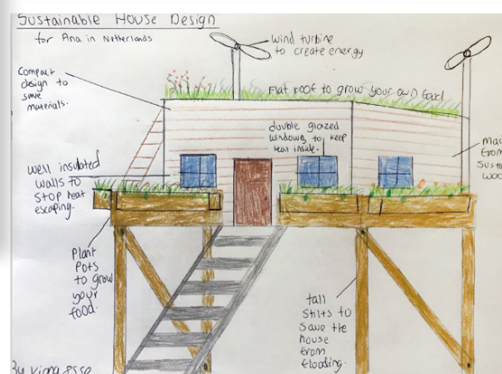 Sustainable House Design
for Ana in Netherlands
wind turbine
to create energy
Compact
design to
save
materials.
Flat roof to grow your own food
double glazed
windows to keep
heat inside.
made
from
wood
well insulated
walls to
stop heat
escaping.
Plant
Pots
to grow
your
food.
tall
stilts to
save the
house
from
flooding.
By